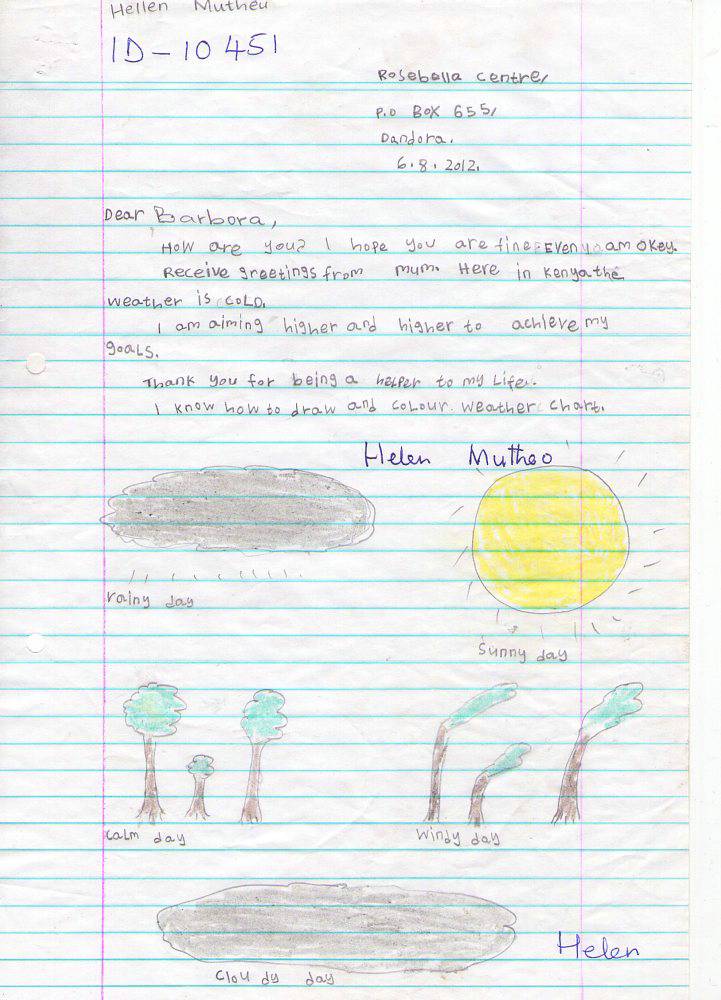 Hellen Mutheu
ID-10451
Rosebella centre,
P.O BOX 655,
Dandora.
6.8.2012.
Dear Barbora,
How are you? I hope you are fine. Even am okey.
Receive greetings from mum. Here in Kenya the
weather is cold.
I am aiming higher and higher to achieve my
goals.
Thank you for being a helper to my life.
I know how to draw and colour weather chart.
Helen Mutheo
rainy day
Sunny day
calm day
windy day
cloudy day
Helen